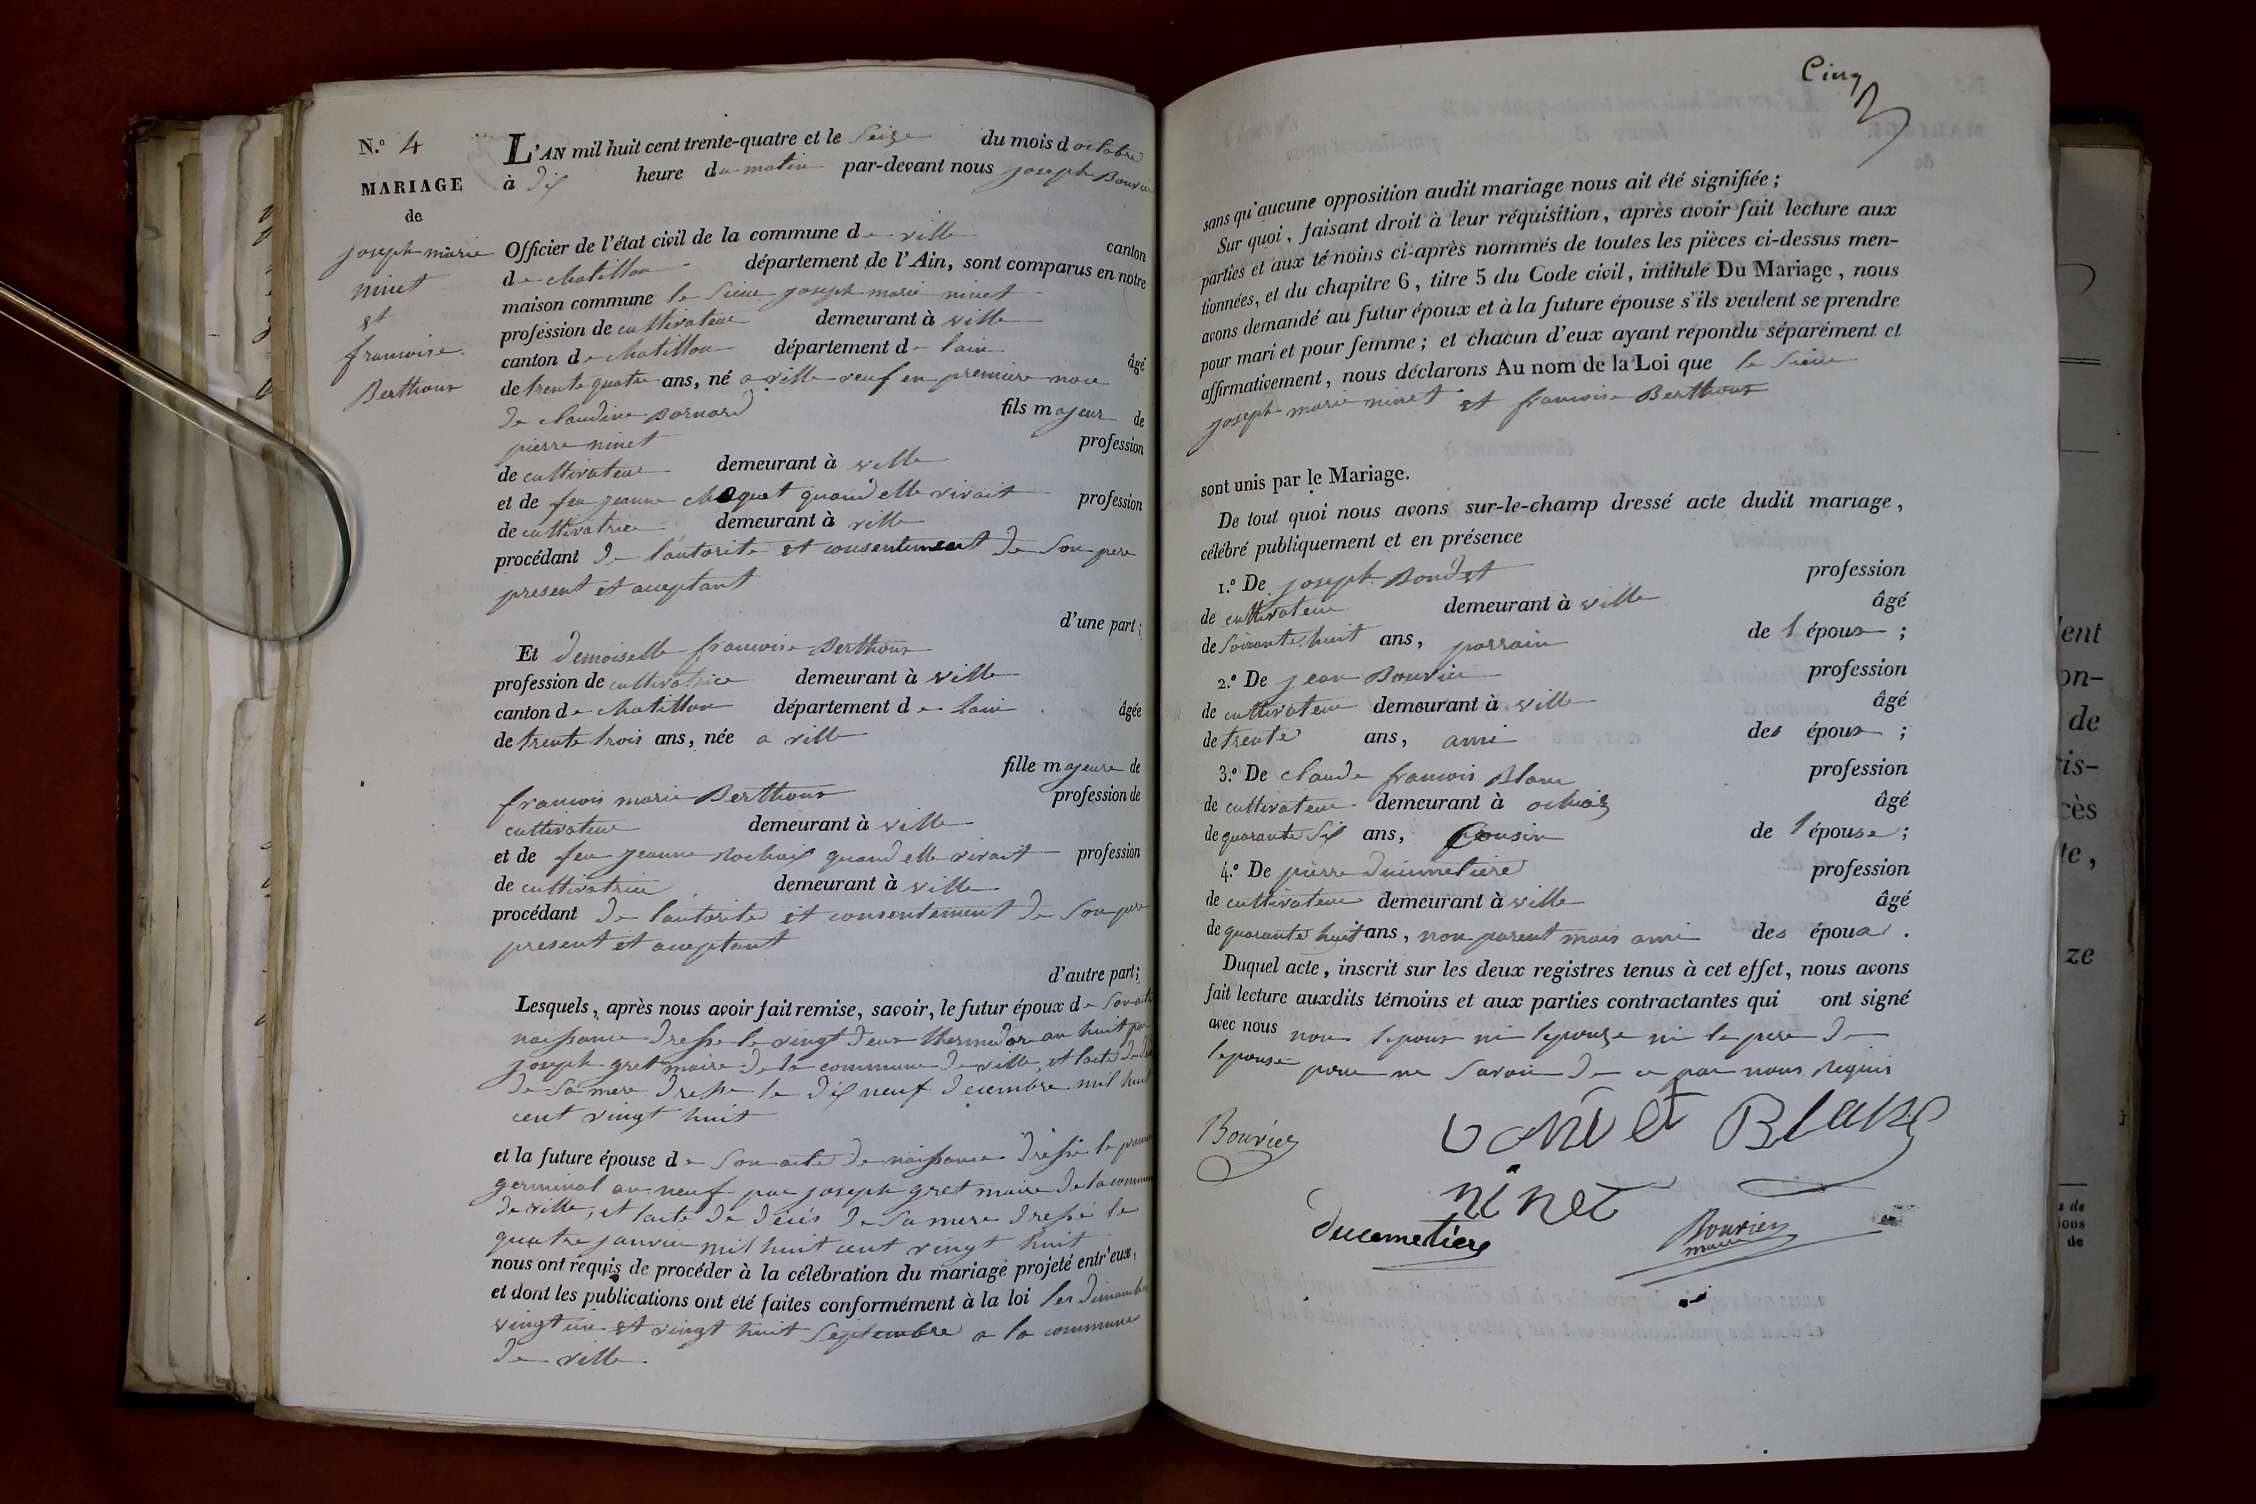 N.º 4
MARIAGE
de
joseph marie
ninet
et
francoise
Berthoux
L'AN mil huit cent trente-quatre et le Seize du mois d octobre
à dix heure du matin par-devant nous joseph Bouvier
Officier de l'état civil de la commune de ville canton
de chatillon département de l'Ain, sont comparus en notre
maison commune le Sieur joseph marie ninet
profession de cultivateur demeurant à ville
canton de chatillon département de lain âgé
de trente quatre ans, né a ville veuf en premiere noce
de claudine Bornard fils majeur de
pierre ninet profession
de cultivateur demeurant à ville
et de feu jeanne quand elle vivait profession
de cultivatrice demeurant à ville
procédant de l'autorite et consentement de Son pere
present et aceptant
d'une part ;
Et demoiselle francoise Berthoux
profession de cultivatrice demeurant à ville
canton de chatillon département de lain âgée
de trente trois ans, née a ville
fille majeure de
francois marie Berthoux profession de
cultivateur demeurant à ville
et de feu jeanne quand elle vivait profession
de cultivatrice demeurant à ville
procédant de l'autorite et consentement de Son pere
present et aceptant
d'autre part ;
Lesquels, après nous avoir fait remise, savoir, le futur époux de Son acte
naissance dresse le vingt deux thermidor an huit par
joseph gret maire de la commune de ville, et lacte de
de Sa mere dresse le dix neuf decembre mil huit
cent vingt huit
et la future épouse de Son acte de naissance dressé le premier
germinal an neuf par joseph gret maire de la commune
de ville, et lacte de décés de Sa mere dressé le
quatre janvier mil huit cent vingt huit
nous ont requis de procéder à la célébration du mariage projeté entr'eux,
et dont les publications ont été faites conformément à la loi les dimanche
vingt un et vingt huit Septembre a la commune
de ville
Cinq
sans qu'aucune opposition audit mariage nous ait été signifiée ;
Sur quoi, faisant droit à leur réquisition, après avoir fait lecture aux
parties et aux témoins ci-après nommés de toutes les pièces ci-dessus men-
tionnées, et du chapitre 6, titre 5 du Code civil, intitulé Du Mariage, nous
avons demandé au futur époux et à la future épouse s'ils veulent se prendre
pour mari et pour femme ; et chacun d'eux ayant répondu séparément et
affirmativement, nous déclarons Au nom de la Loi que le Sieur
joseph marie ninet et francoise Berthoux
sont unis par le Mariage.
De tout quoi nous avons sur-le-champ dressé acte dudit mariage,
célébré publiquement et en présence
1.º De joseph Boudet profession
de cultivateur demeurant à ville âgé
de Soixante huit ans, parrain de l époux ;
2.º De jean Bouvier profession
de cultivateur demeurant à ville âgé
de trente ans, ami des époux ;
3.º De claude francois Blanc profession
de cultivateur demeurant à ochiaz âgé
de quarante Six ans, Cousin de l épouse ;
4.º De pierre Ducimetiere profession
de cultivateur demeurant à ville âgé
de quarante huit ans, non parent mais ami des époux .
Duquel acte, inscrit sur les deux registres tenus à cet effet, nous avons
fait lecture auxdits témoins et aux parties contractantes qui ont signé
avec nous non lepoux ni lepouse ni le pere de
lepouse pour ne Savoir de ce par nous Requis
Bouvier
Blanc
ninet
Ducemetiere
Bouvier
maire